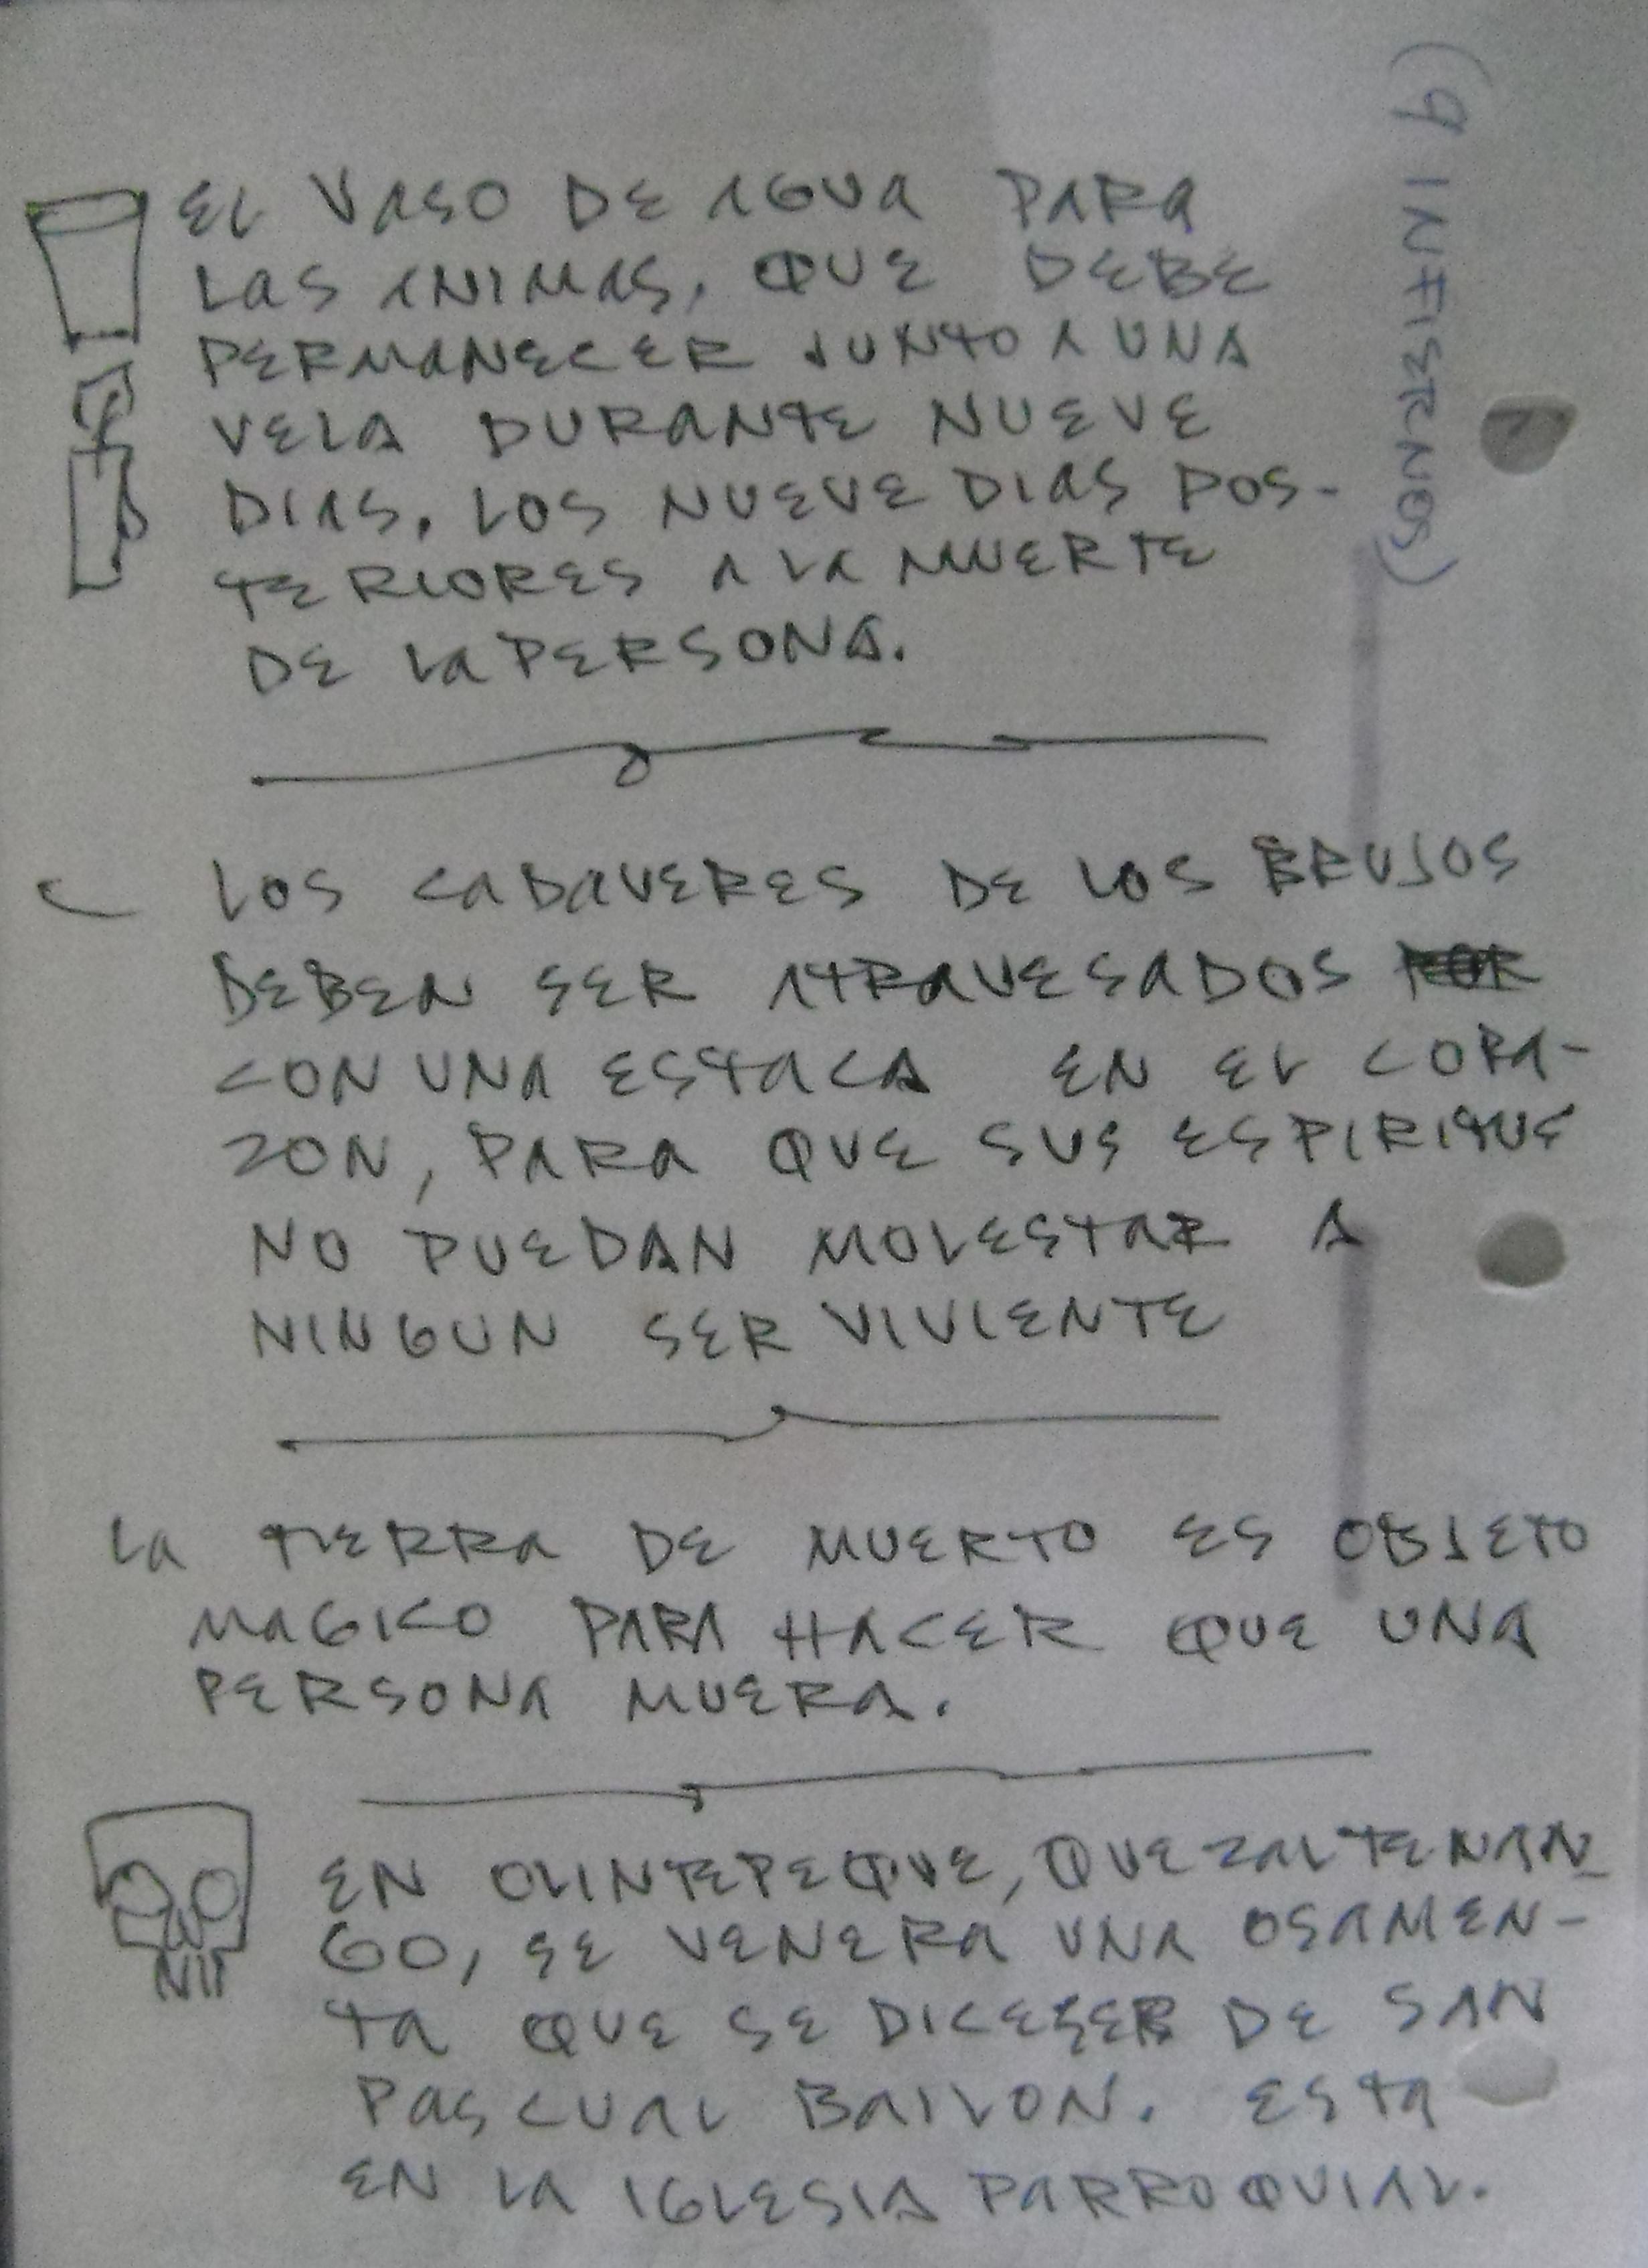 (9 INFIERNOS)
EL VASO DE AGUA PARA
LAS ANIMAS, QUE DEBE
PERMANECER JUNTO A UNA
VELA DURANTE NUEVE
DIAS. LOS NUEVE DIAS POS-
TERIORES A LA MUERTE
DE LA PERSONA.
LOS CADAVERES DE LOS BRUJOS
DEBEN SER ATRAVESADOS
CON UNA ESTACA EN EL CORA-
ZON, PARA QUE SUS ESPIRITUS
NO PUEDAN MOLESTAR A
NINGUN SER VIVIENTE
LA TIERRA DE MUERTO ES OBJETO
MAGICO PARA HACER QUE UNA
PERSONA MUERA.
EN OLINTEPEQUE, QUEZALTENAN
GO, SE VENERA UNA OSAMEN-
TA QUE SE DICE SER DE SAN
PASCUAL BAILON. ESTA
EN LA IGLESIA PARROQUIAL.